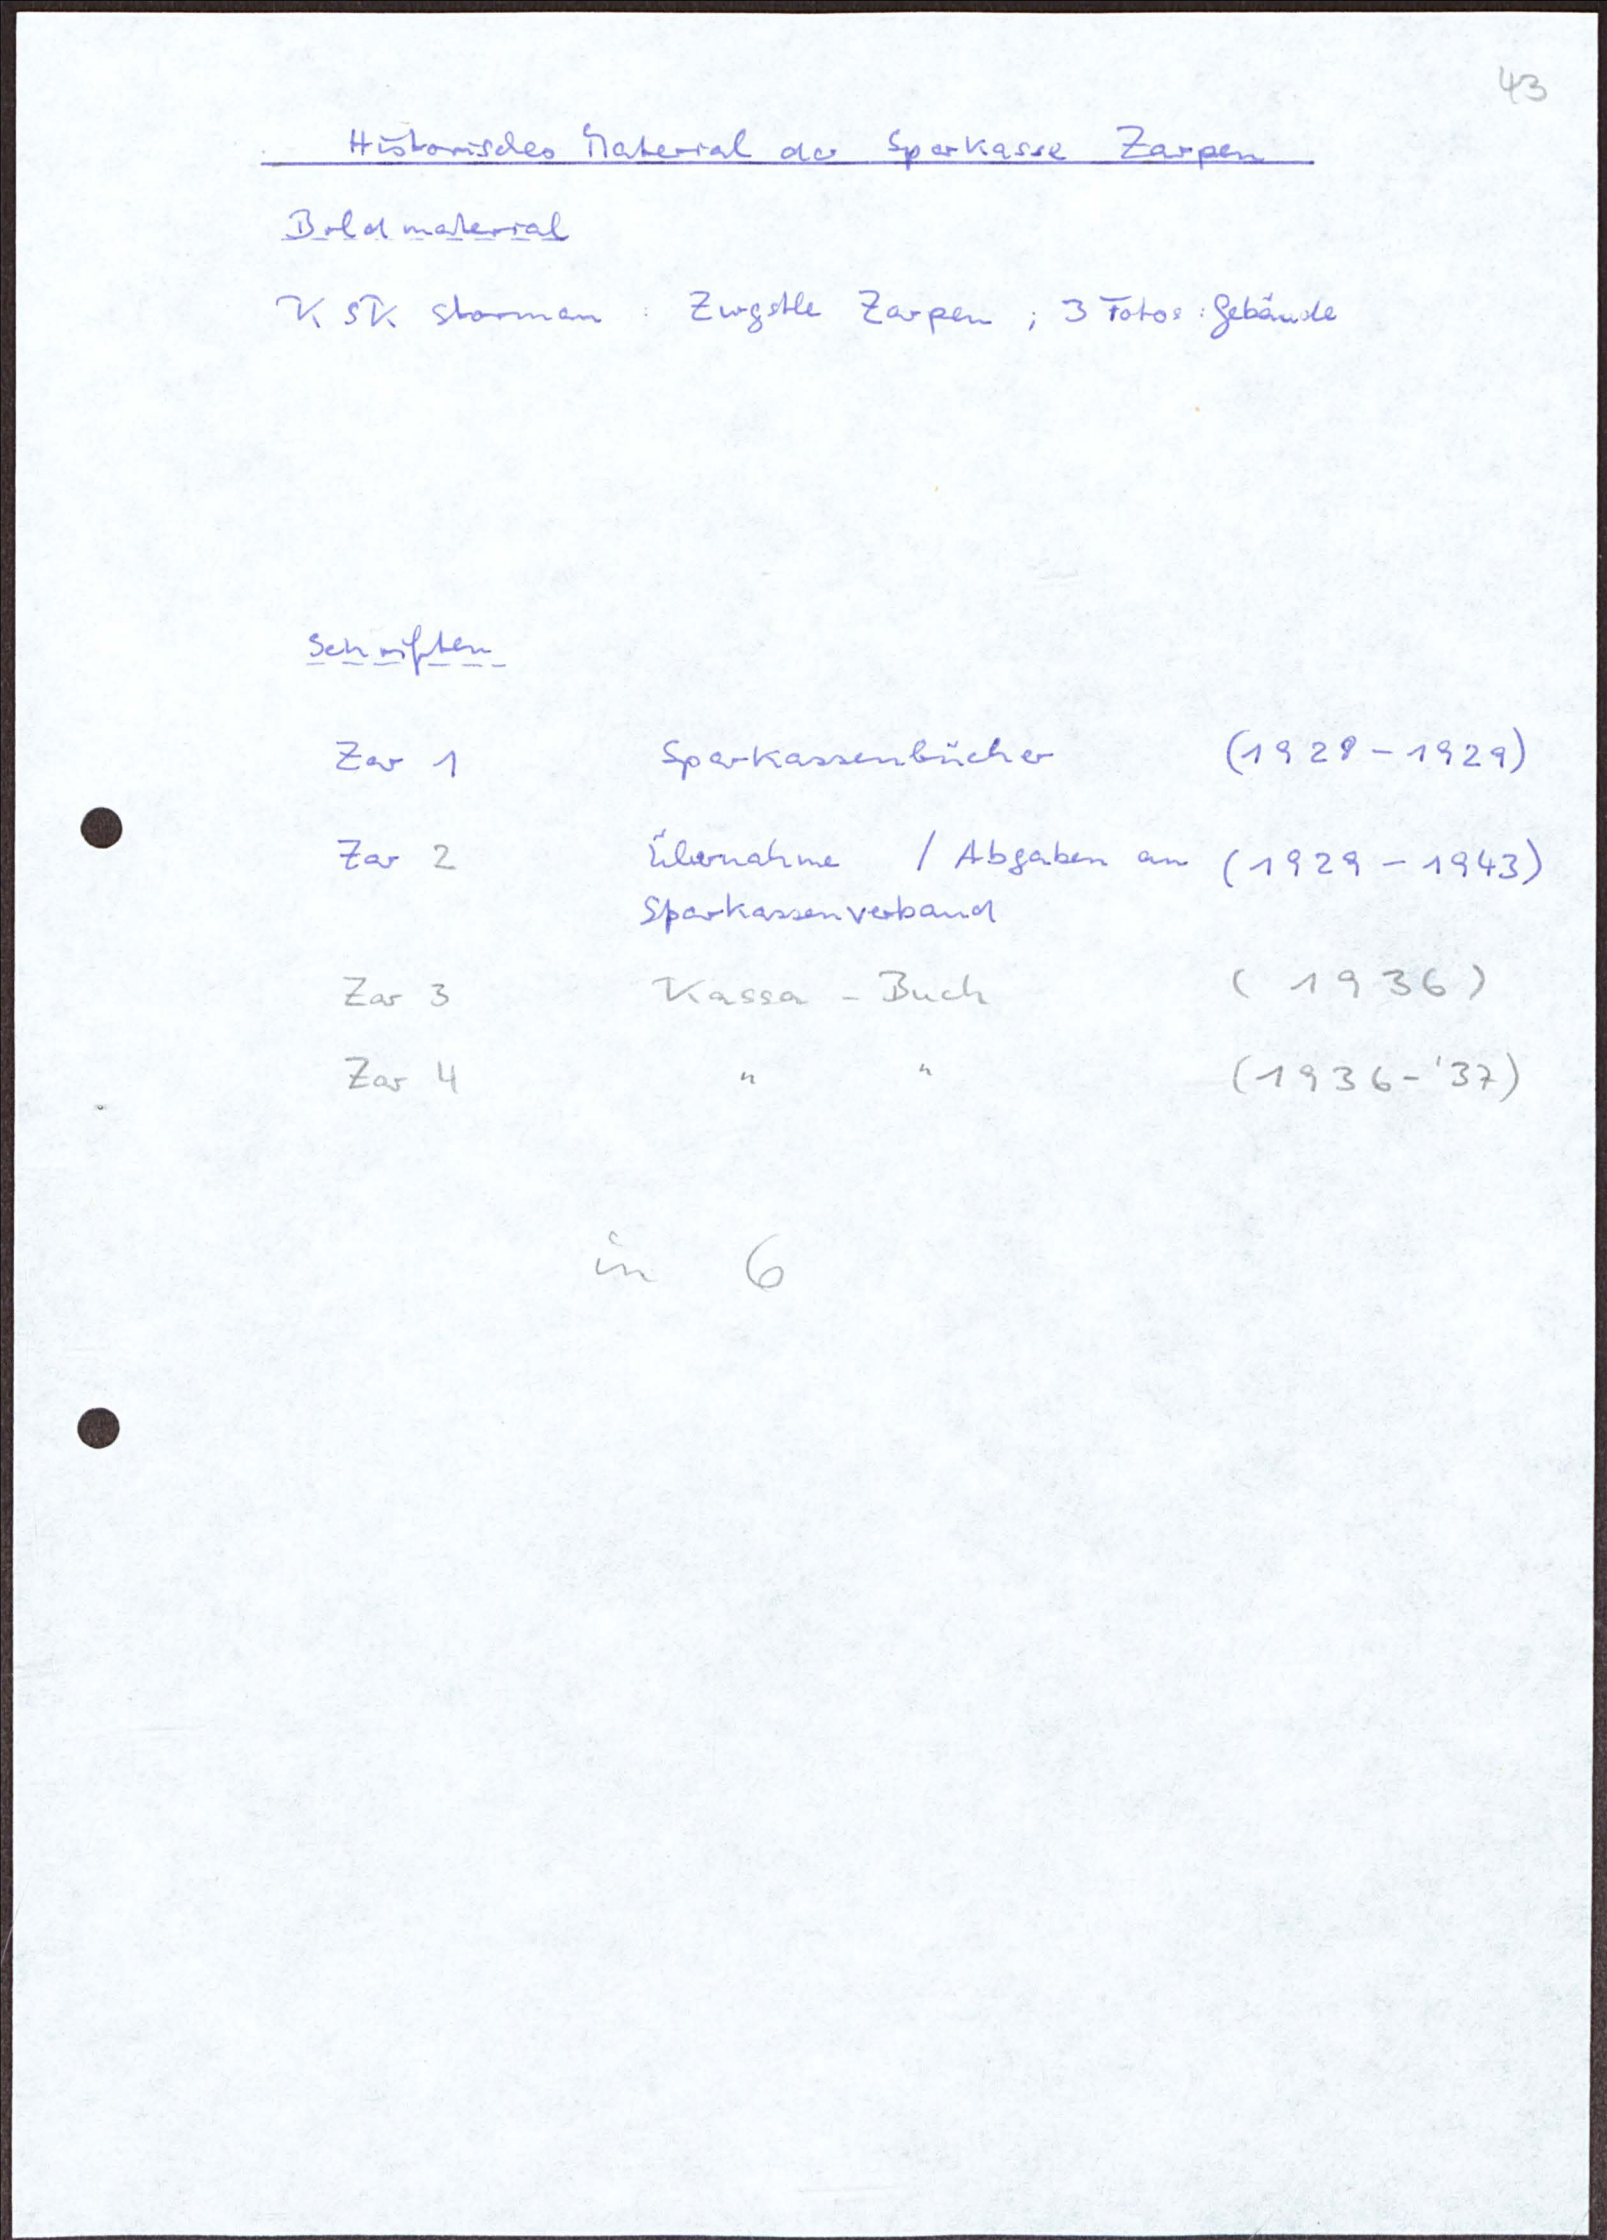 43
Historisches Material der Sparkasse Zarpen
Bildmaterial
KSK Stormarn : Zwgstle Zarpen ; 3 Fotos : Gebäude
Schriften
Zar 1 Sparkassenbücher (1928-1929)
Zar 2 Übernahme / Abgaben an (1929-1943)
Sparkassenverband
Zar 3 Kassa - Buch (1936)
Zar 4 " " (1936-'37)
in 6